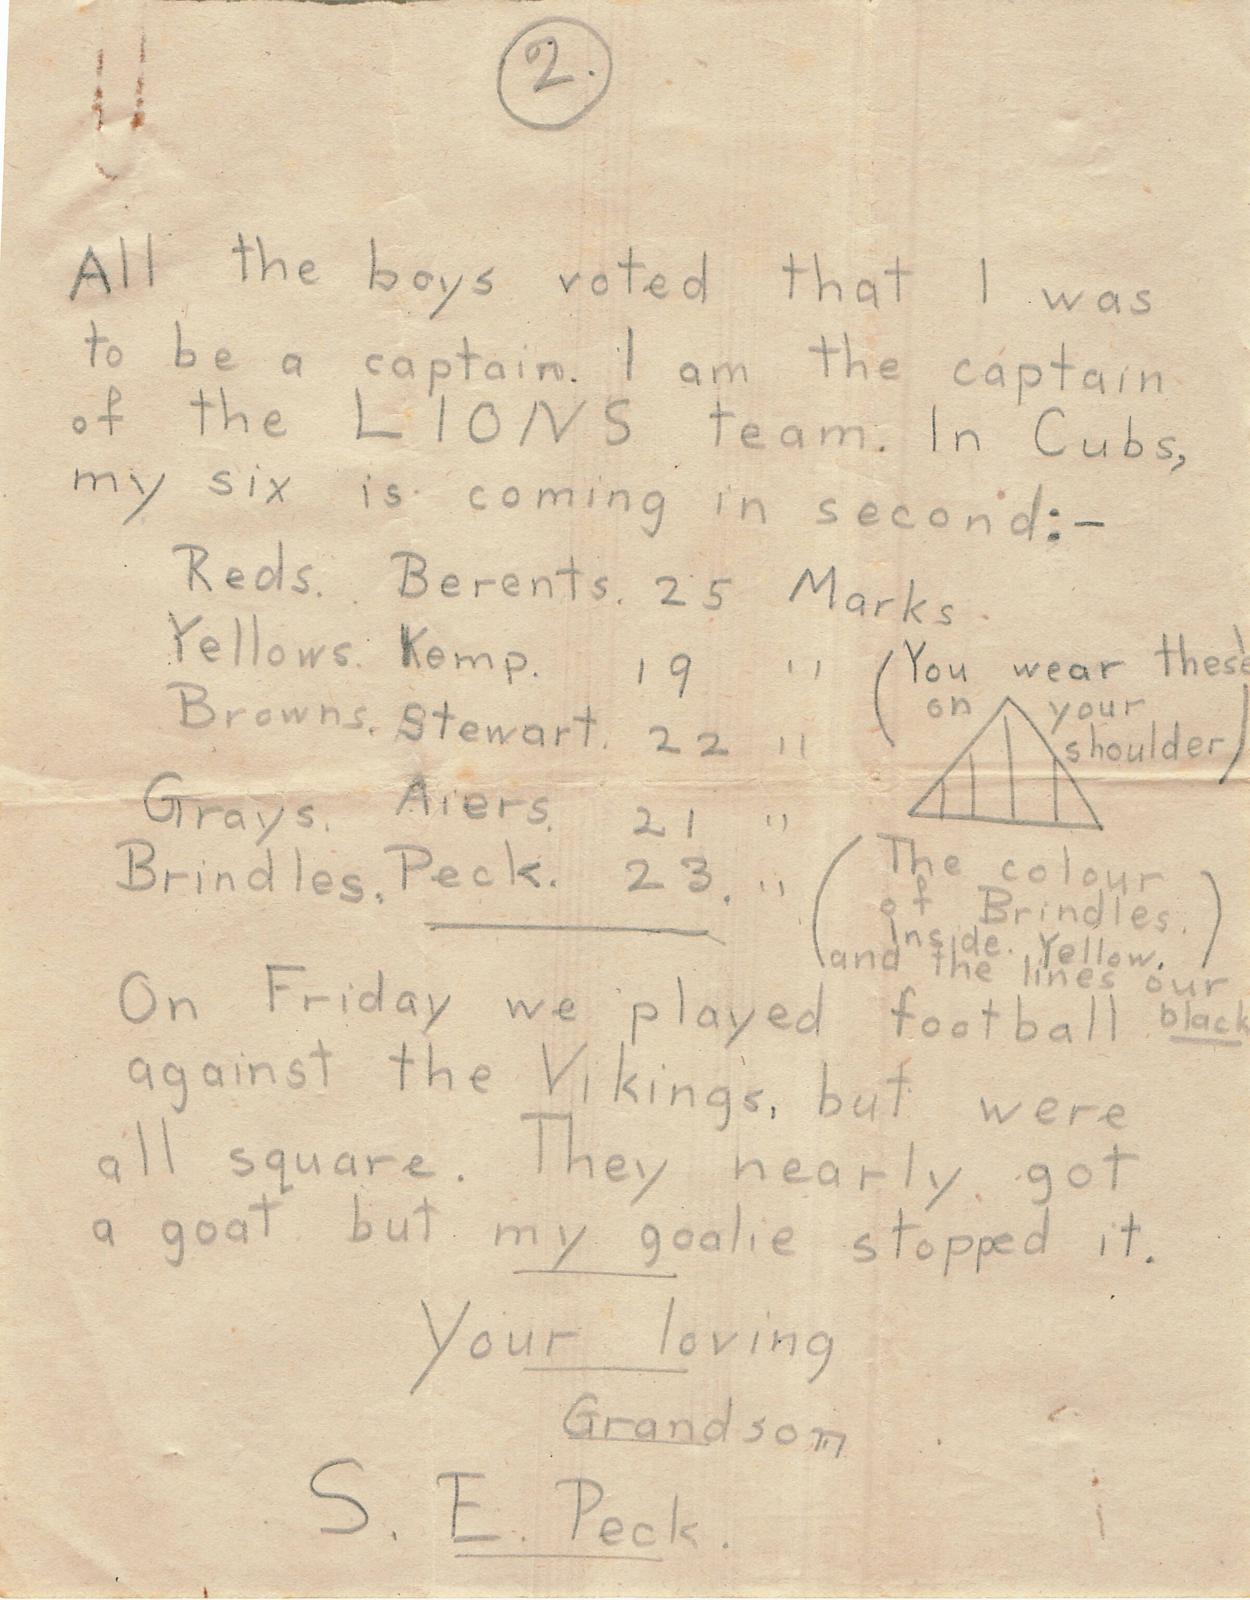 2.
All the boys voted that I was
to be a captain. I am the captain
of the LIONS team. In Cubs,
my six is coming in second:-
Reds. Berents. 25 Marks
Yellows. Kemp. 19 "
Browns. Stewart. 22 "
Grays. Aiers. 21 "
Brindles. Peck. 23. "
(You wear these
on your
shoulder)
(The colour
of Brindles.)
Inside. Yellow.
and the lines our
black
On Friday we played football
against the Vikings, but were
all square. They nearly got
a goat but my goalie stopped it.
Your loving
Grandson
S. E. Peck.